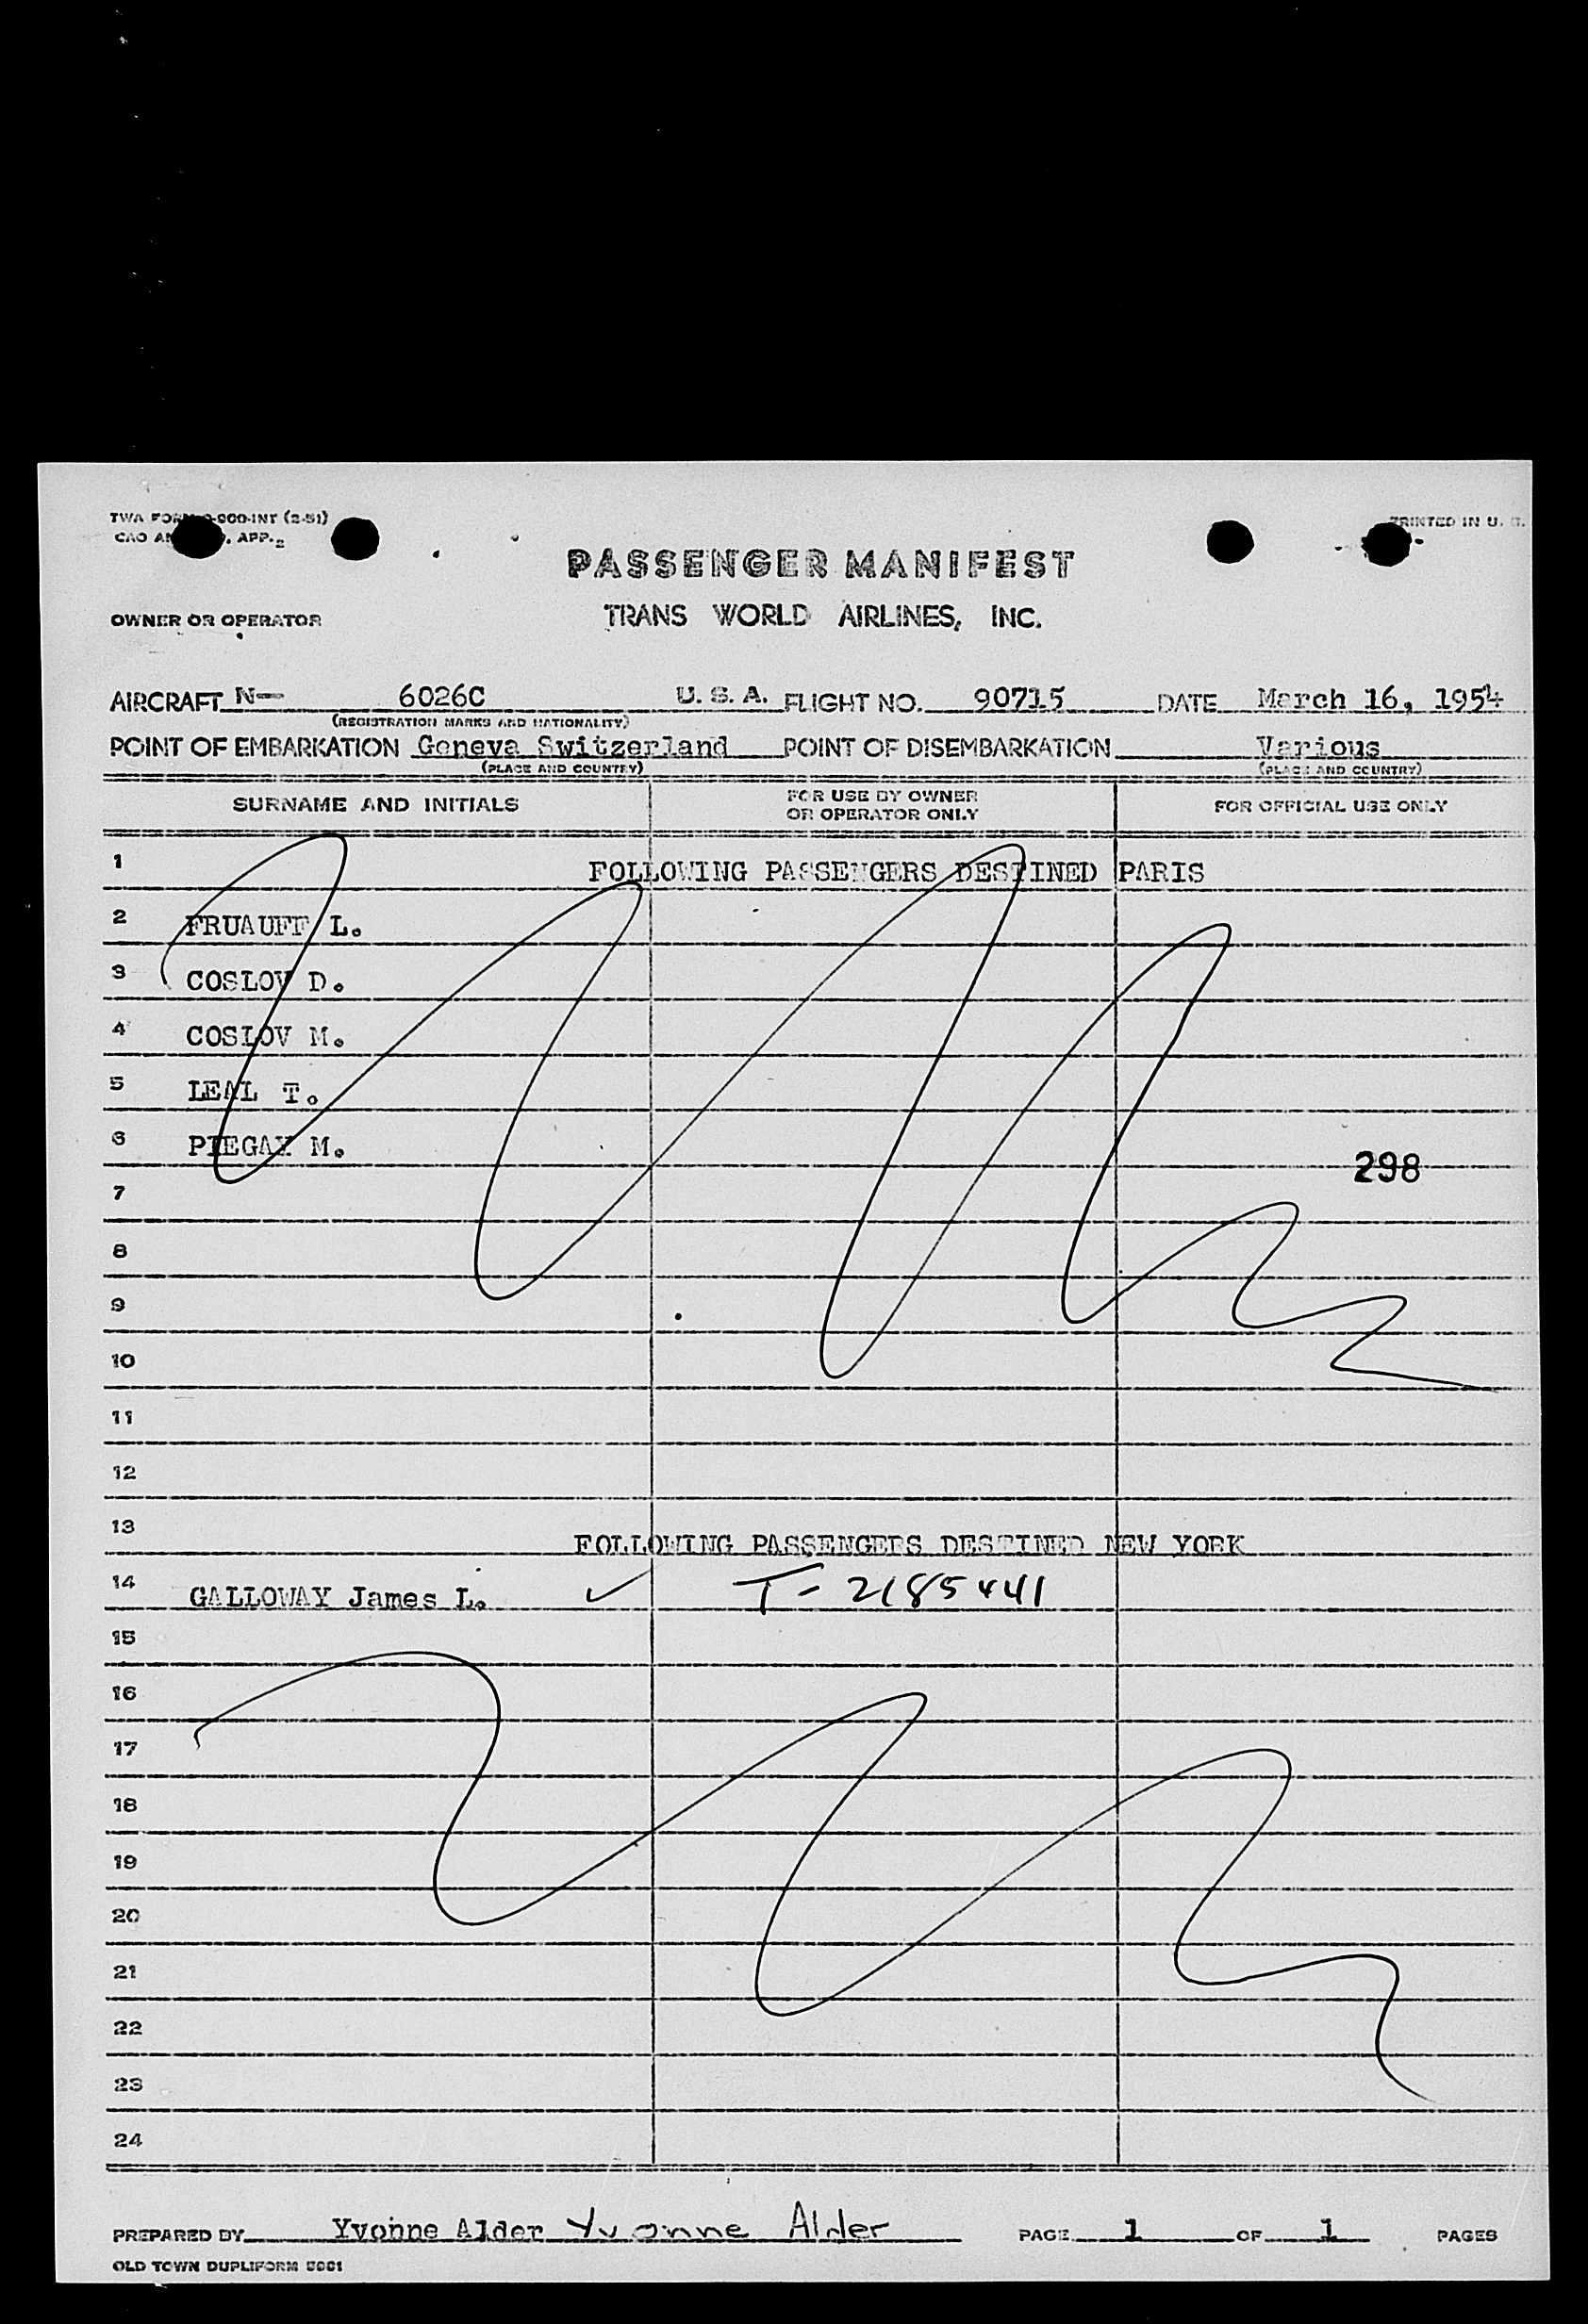 TWA FORM -900-INT (2-51)
CAO , APP. 2
PRINTED IN U. S.
PASSENGER MANIFEST
OWNER OR OPERATOR TRANS WORLD AIRLINES, INC.
AIRCRAFT N- 6026C U. S. A. FLIGHT NO. 90715 DATE March 16, 1954
(REGISTRATION MARKS AND NATIONALITY)
POINT OF EMBARKATION Geneva Switzerland POINT OF DISEMBARKATION Various
(PLACE AND COUNTRY) (PLACE AND COUNTRY)
SURNAME AND INITIALS FOR USE BY OWNER OR OPERATOR ONLY FOR OFFICIAL USE ONLY
1 FOLLOWING PASSENGERS DESTINED PARIS
2 FRUAUFF L.
3 COSLOV D.
4 COSLOV M.
5 LEAL T.
6 PIEGAY M.
298
7
8
9
10
11
12
13 FOLLOWING PASSENGERS DESTINED NEW YORK
14 GALLOWAY James L. ✓ T- 2185441
15
16
17
18
19
20
21
22
23
24
PREPARED BY Yvonne Alder Yvonne Alder PAGE 1 OF 1 PAGES
OLD TOWN DUPLIFORM